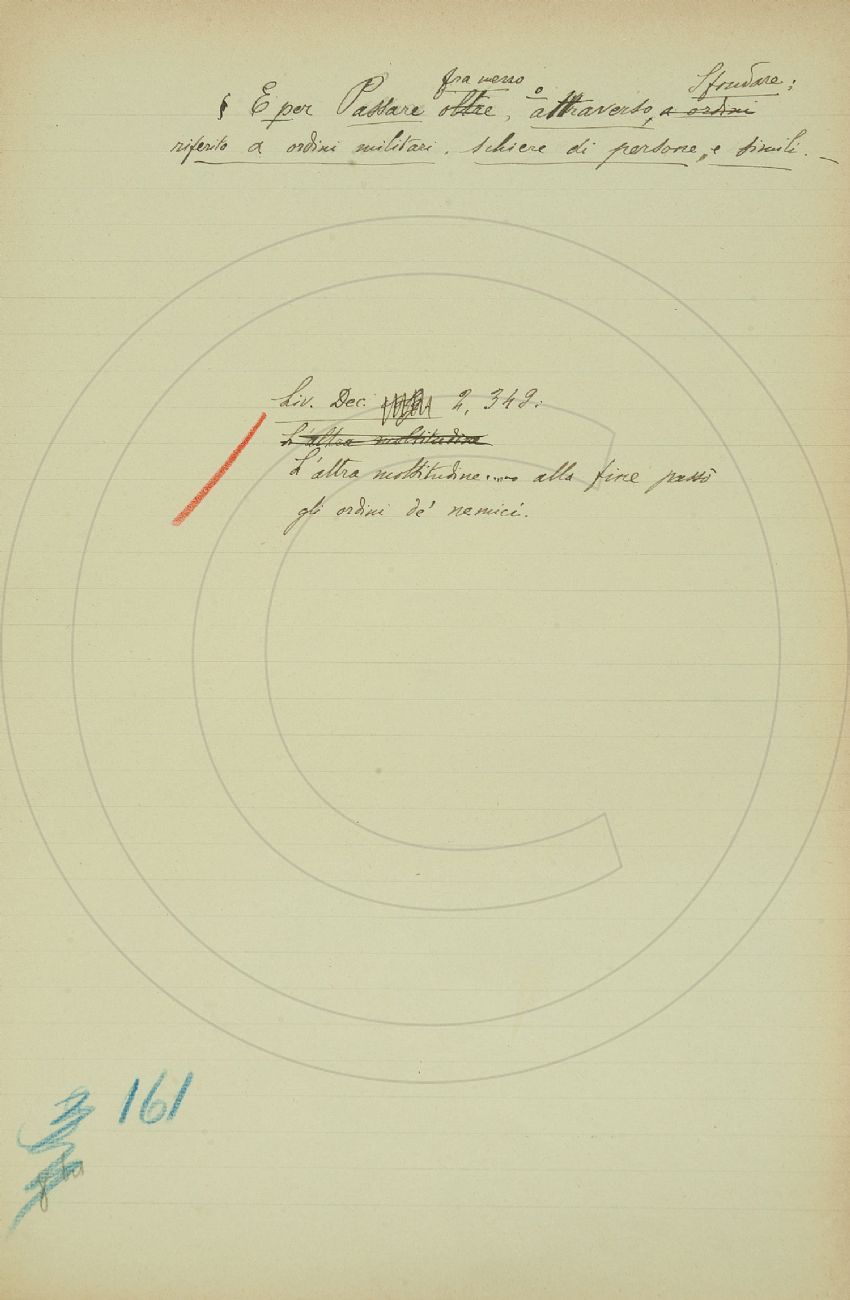 fra mezzo o Sfondare:
§ E per Passare oltre, attraverso, a ordini
riferito a ordini militari, schiere di persone, e simili. _
Liv. Dec. 2, 342:
L'altra moltitudine
L'altra moltitudine..... alla fine passò
gli ordini de' nemici.
161